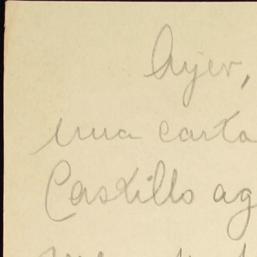 Ayer,
una carta
Castillo ag